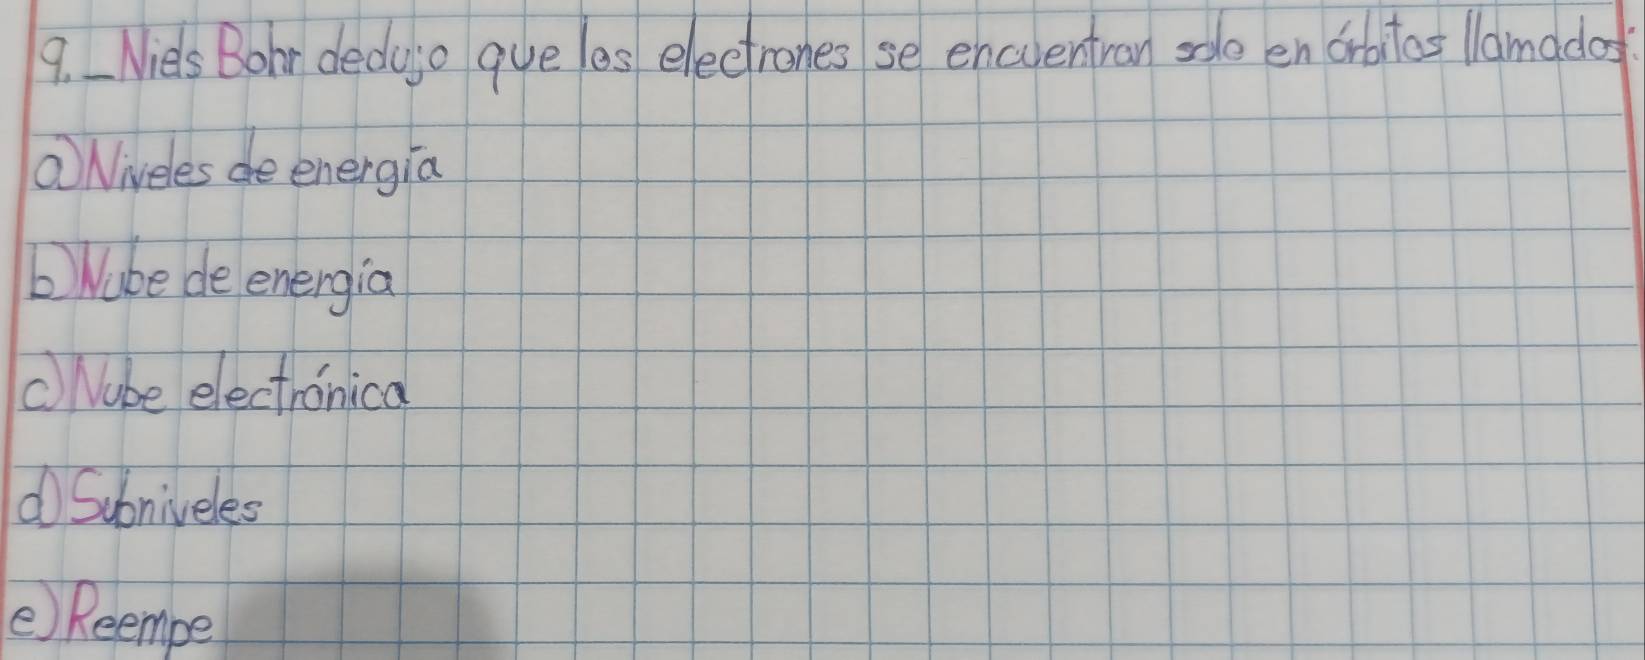 9._ Niels Bohr dedujo que los electrones se encuentran solo en órbitas llamados:
a) Niveles de energía
b) Nube de energía
c) Nube electrónica
d) Subniveles
e) Reempe